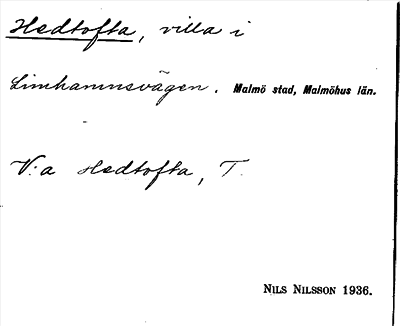 Hedtofta, villa i
Limhamnsvägen. Malmö stad, Malmöhus län.
V:a Hedtofta, T.
NILS NILSSON 1936.